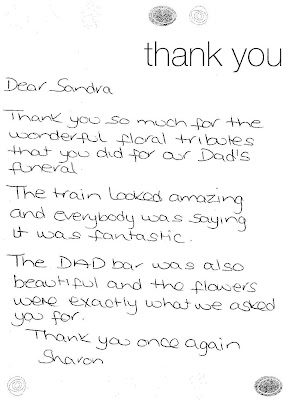 thank you
Dear Sandra
Thank you so much for the
wonderful floral tributes
that you did for our Dad's
funeral.
The train looked amazing
and everybody was saying
it was fantastic.
The DAD bar was also
beautiful and the flowers
were exactly what we asked
you for.
Thank you once again
Sharon